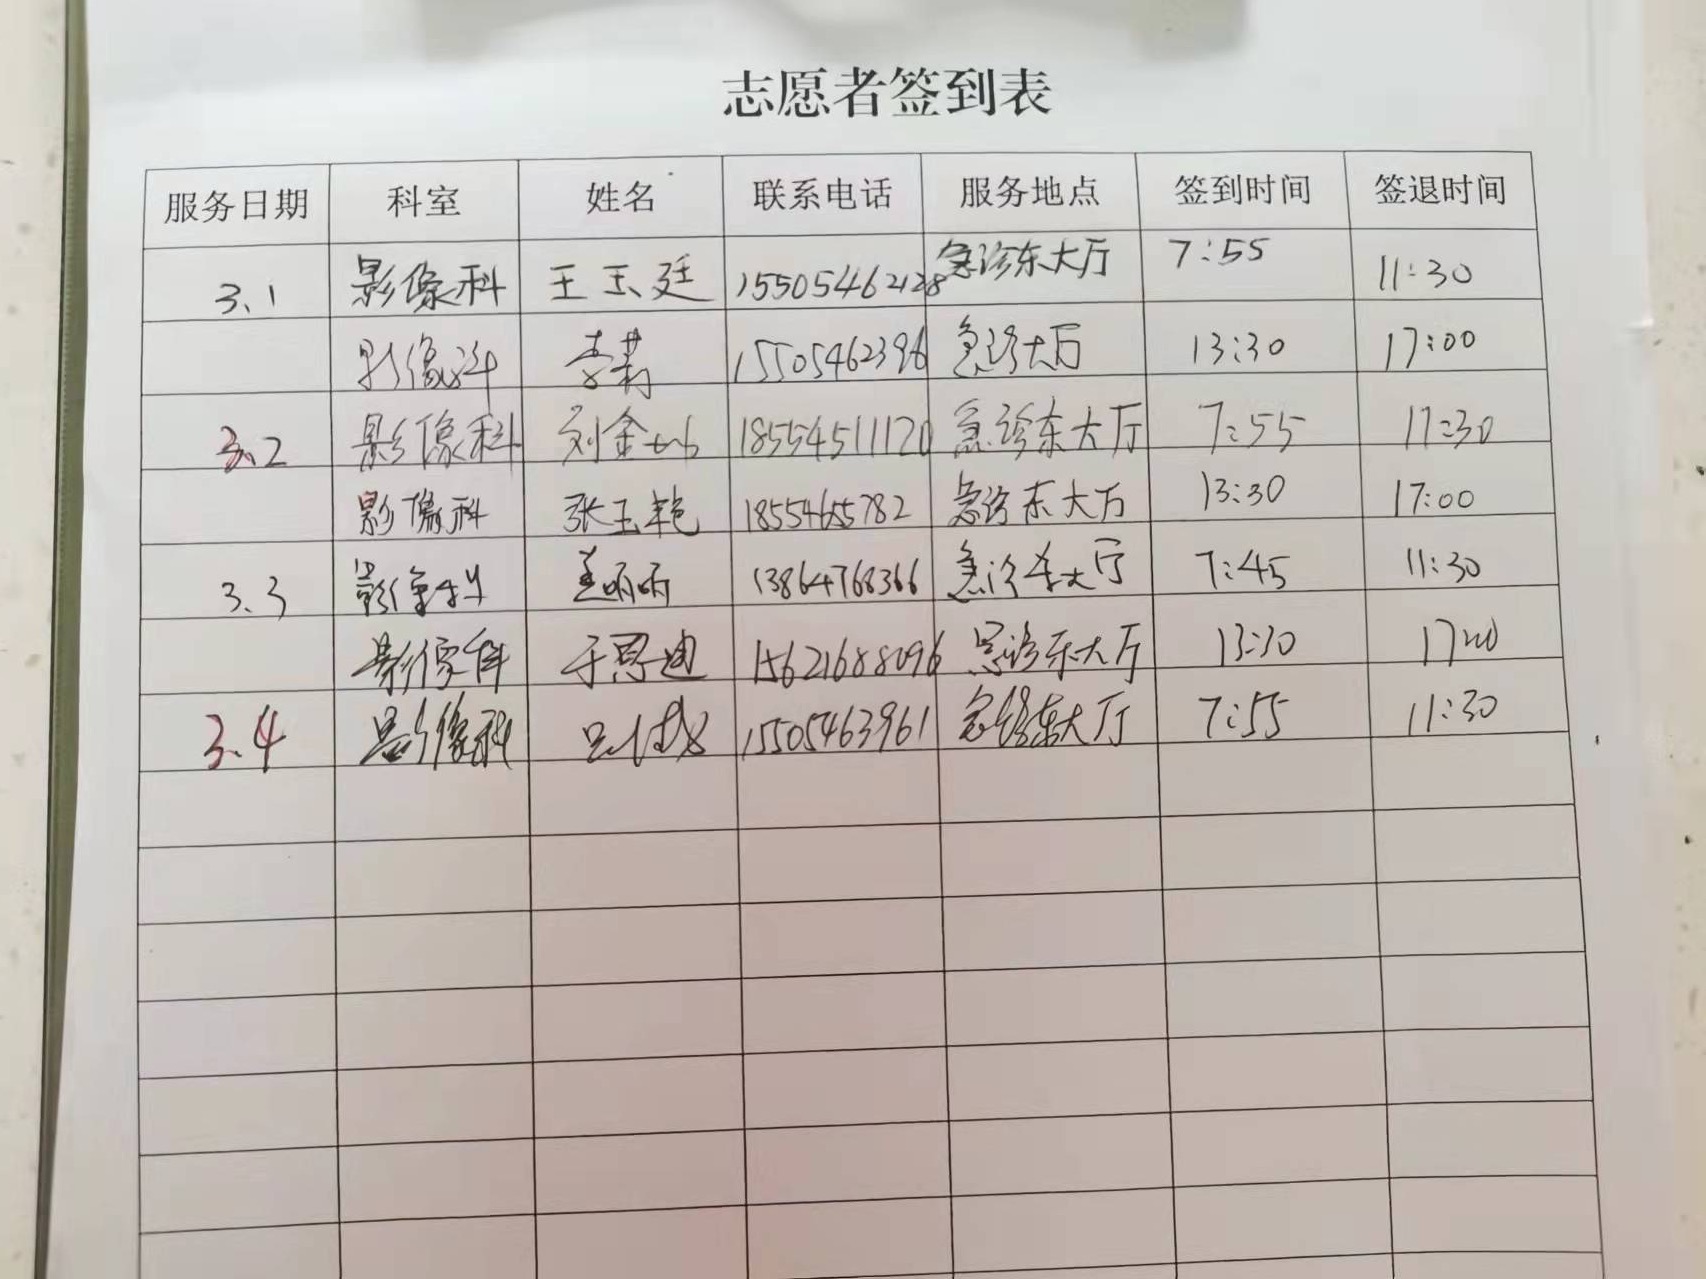 志愿者签到表
服务日期 科室 姓名 联系电话 服务地点 签到时间 签退时间
3.1 影像科 王玉廷 15505462128 急诊东大厅 7:55 11:30
影像科 李莉 15505462396 急诊大厅 13:30 17:00
3.2 影像科 刘金 18554511120 急诊东大厅 7:55 11:30
影像科 张玉艳 1855465782 急诊东大厅 13:30 17:00
3.3 影像科 丽丽 13864768366 急诊东大厅 7:45 11:30
影像科 于恩迪 15621688096 急诊东大厅 13:30 17:00
3.4 影像科 15505463961 急诊东大厅 7:55 11:30